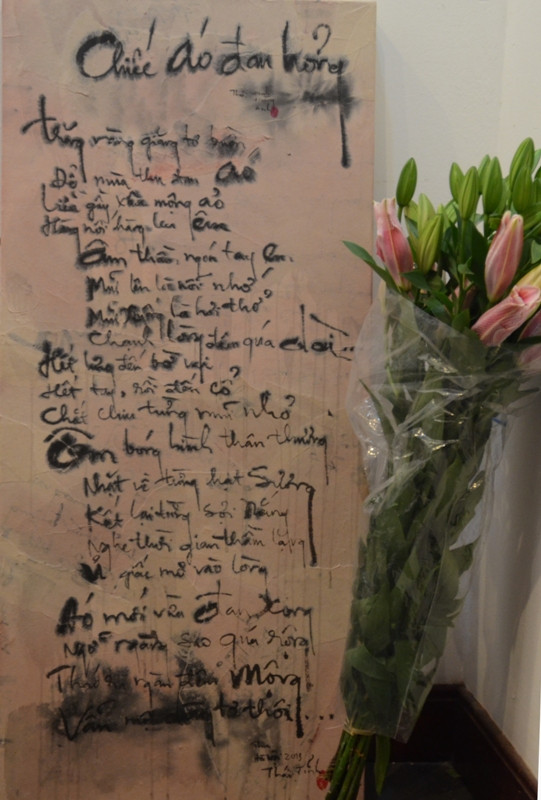 Chiếc áo đan hỏng
Trăng vàng giăng tơ
Độ mùa thu đan áo
Liễu gầy xưa mỏng áo
Hàng nối hàng lại êm
Âm thầm, ngón tay em.
Mũi lên là nỗi nhớ
Mũi xuống là hơi thở
Chạnh lòng đêm quá dài...
Hết lòng đến bờ vai
Hết tay, rồi đến cổ
Chắt chiu từng mũi nhỏ
Ôm bóng hình thân thương
Nhặt về từng hạt sương
Kết lại từng sợi nắng
Nghe thời gian thầm lặng
Ủ giấc mơ vào lòng
Áo mới vừa đan xong
Ngỡ ngàng sao quá rộng
mộng
Vẫn tơ thôi...